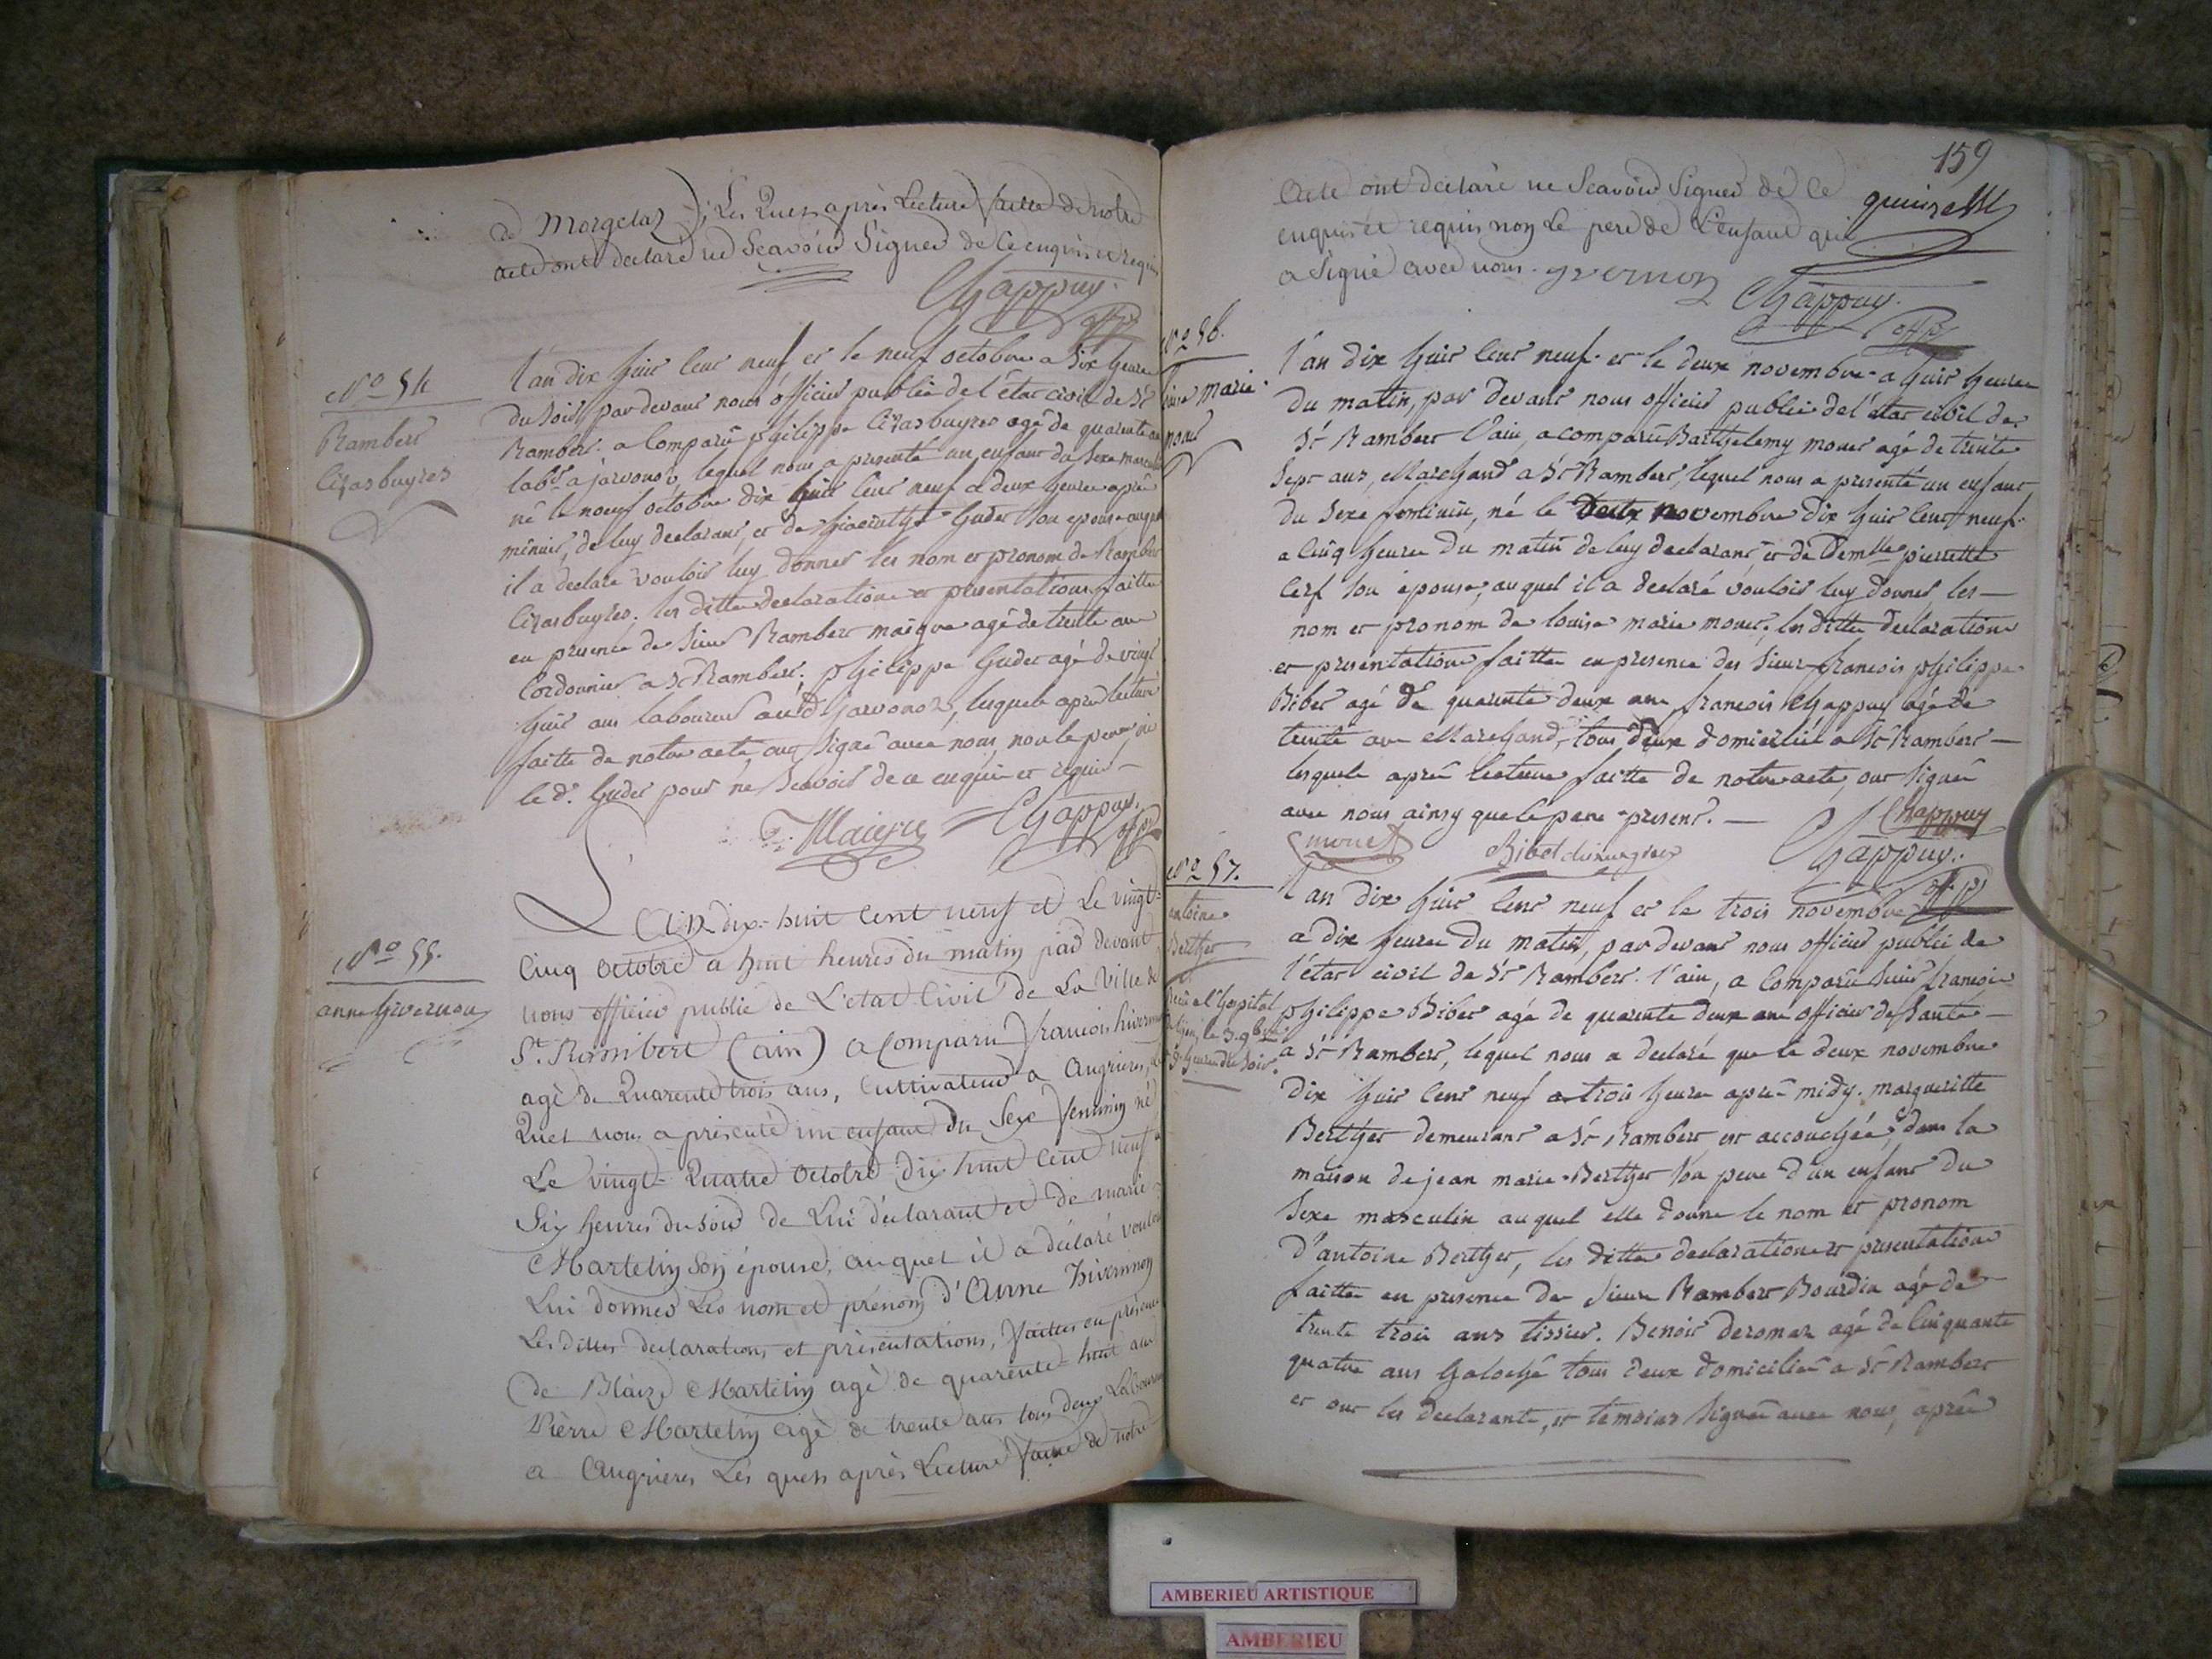 de Morgelaz, Les Quels après Lecture faitte de notre
acte ont declaré ne Scavoir Signer de ce enquis et requis
Chappuy.
off p
N° 54
Rambert
l'an dix huit cent neuf et le neuf octobre a Six heures
du Soir par devant nous officier public de l'état civil de St
Rambert a Comparu philippe agé de quarente ans
labr a javornoz, lequel nous a presenté un enfant du Sexe masculin
né le neuf octobre dix huit cent neuf a deux heures après
minuit, de luy declarant, et de hiacinthe Guder son epouse auquel
il a declaré vouloir luy donner les nom et pronom de Rambert
les ditte declaration et presentation faitte
en presence de Sieur Rambert maigre agé de trente ans
Cordonnier a St Rambert, philippe Guder agé de vingt
huit ans laboureur aud. javornoz, lesquels apres lecture
faitte de notre acte ont Signé avec nous, non le pere ni
le d. Guder pour ne Scavoir de ce enquis et requis
Maigre Chappuy.
off p
N° 55.
anne hivernon
L'An dix-huit Cent neuf et Le vingt-
Cinq Octobre a huit heures du matin par devant
nous officier public de L'état Civil de La Ville de
St. Rambert (ain) a Comparu francois hivernon
agé de Quarente trois ans, Cultivateur a Angrieres, le
Quel nous a présenté un enfant du Sexe féminin né
Le vingt-Quatre Octobre dix huit Cent neuf a
Six heures du Soir de Lui déclarant et de marie
Martelin Son épouse, auquel il a déclaré vouloir
Lui donner Les nom et prénom d'Anne hivernon
Les dittes declarations et présentations, faittes en présence
de Blaize Martelin agé de quarente-huit ans
Pierre Martelin agé de trente ans tous deux Laboureurs
a Angrieres Les quels après Lecture faitte de notre
159
acte ont declaré ne Scavoir Signer de Ce
enquis et requis non Le pere de L'enfant qui
a Signé avec nous. yvernon Chappuy.
off p
N° 56.
Louise marie
monet
l'an dix huit cent neuf et le deux novembre a huit heures
du matin, par devant nous officier public de l'état civil de
St Rambert l'ain, a comparu Barthelemy monet agé de trente
Sept ans, Marchand a St Rambert, lequel nous a presenté un enfant
du Sexe feminin, né le deux novembre dix huit cent neuf
a cinq heures du matin de luy declarant, et de Demlle pierrette
Cerf son épouse, auquel il a declaré vouloir luy donner les
nom et pronom de louise marie monet, les ditte declaration
et presentation faitte en presence des Sieur francois philippe
Bibet agé de quarente deux ans francois Chappuy agé de
trente ans Marchand, tous deux domicilié a St Rambert
lesquels après lecture faitte de notre acte, ont Signé
avec nous ainsy que le pere present.
monet Bibet chirurgien Chappuy
Chappuy.
off p
N° 57.
antoine
Berthet
l'an dix huit cent neuf et le trois novembre
a dix heures du matin, par devant nous officier public de
l'état civil de St Rambert l'ain, a Comparu Sieur francois
philippe Bibet agé de quarente deux ans officier de Santé
a St Rambert, lequel nous a declaré que le deux novembre
dix huit cent neuf a trois heures après midy. margueritte
Berthet demeurant a St Rambert est accouchée, dans la
maison de jean marie Berthet son pere d'un enfant du
Sexe masculin auquel elle donne le nom et pronom
d'antoine Berthet, les ditte declaration et presentation
faitte en presence de Sieur Rambert Bourdin agé de
trente trois ans tissier. Benoit deromaz agé de Cinquante
quatre ans Galoché tous deux domicilié a St Rambert
et ont les declarants, et temoins Signé avec nous, après
AMBERIEU ARTISTIQUE
AMBERIEU